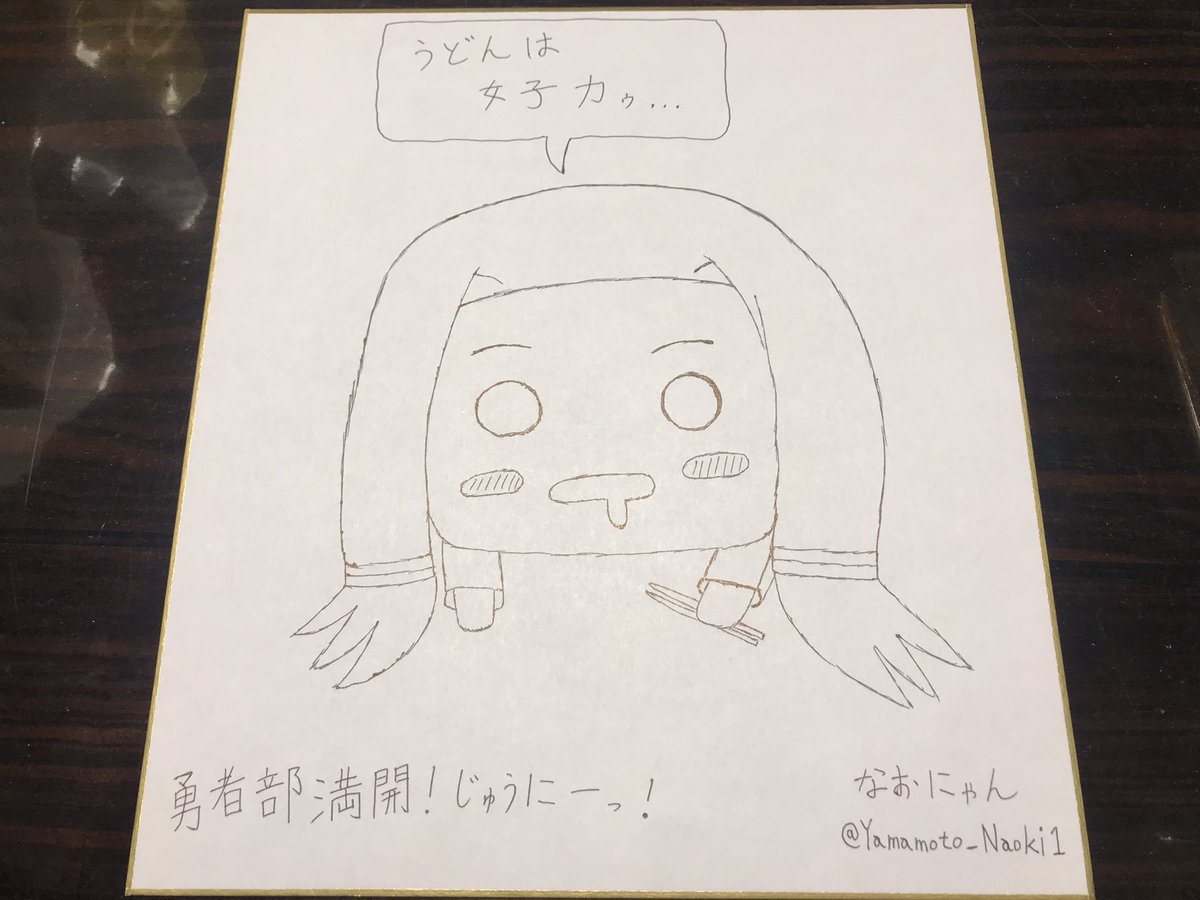 うどんは
女子力ゥ...
勇者部満開！じゅうにーっ！
なおにゃん
@Yamamoto_Naoki1